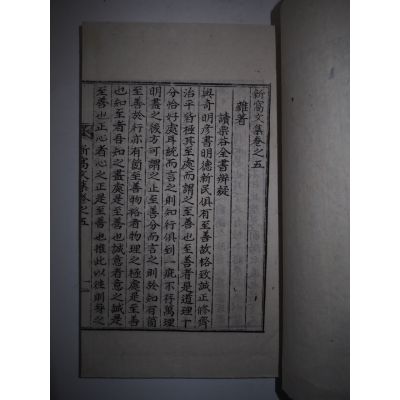 新窩文集卷之五
雜著
讀栗谷全書辨疑
與奇明彦書明德新民俱有至善故格致誠正修齊
治平皆極其至處而謂之至善也至善者是道理十
分恰好處耳統而言之則知行俱到一疵不存萬理
明盡之後方可謂之止至善分而言之則於知有箇
至善於行亦有箇至善物格者物理之極處是至善
也知至者吾知之盡處是至善也誠意者意之誠是
至善也正心者心之正是至善也推此以往則身之
新窩文集卷之五
一